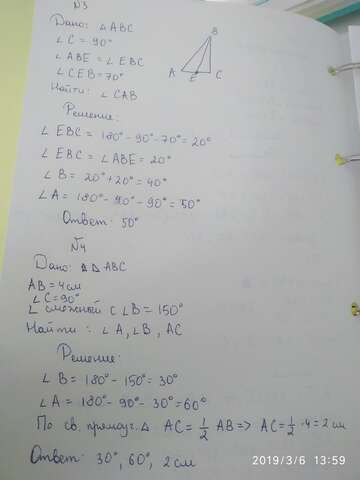 N3
Дано: ∠ABC
∠C = 90°
∠ABE = ∠EBC
∠CEB = 70°
Найти: ∠CAB
B
A
E
C
Решение:
∠EBC = 180° - 90° - 70° = 20°
∠EBC = ∠ABE = 20°
∠B = 20° + 20° = 40°
∠A = 180° - 40° - 90° = 50°
Ответ: 50°
N4
Дано: △△ABC
AB = 4 см
∠C = 90°
∠ смежный с ∠B = 150°
Найти: ∠A, ∠B, AC
Решение:
∠B = 180° - 150° = 30°
∠A = 180° - 90° - 30° = 60°
По св. прямоуг. △ AC = 1/2 AB => AC = 1/2 · 4 = 2 см
Ответ: 30°, 60°, 2 см
2019/3/6 13:59